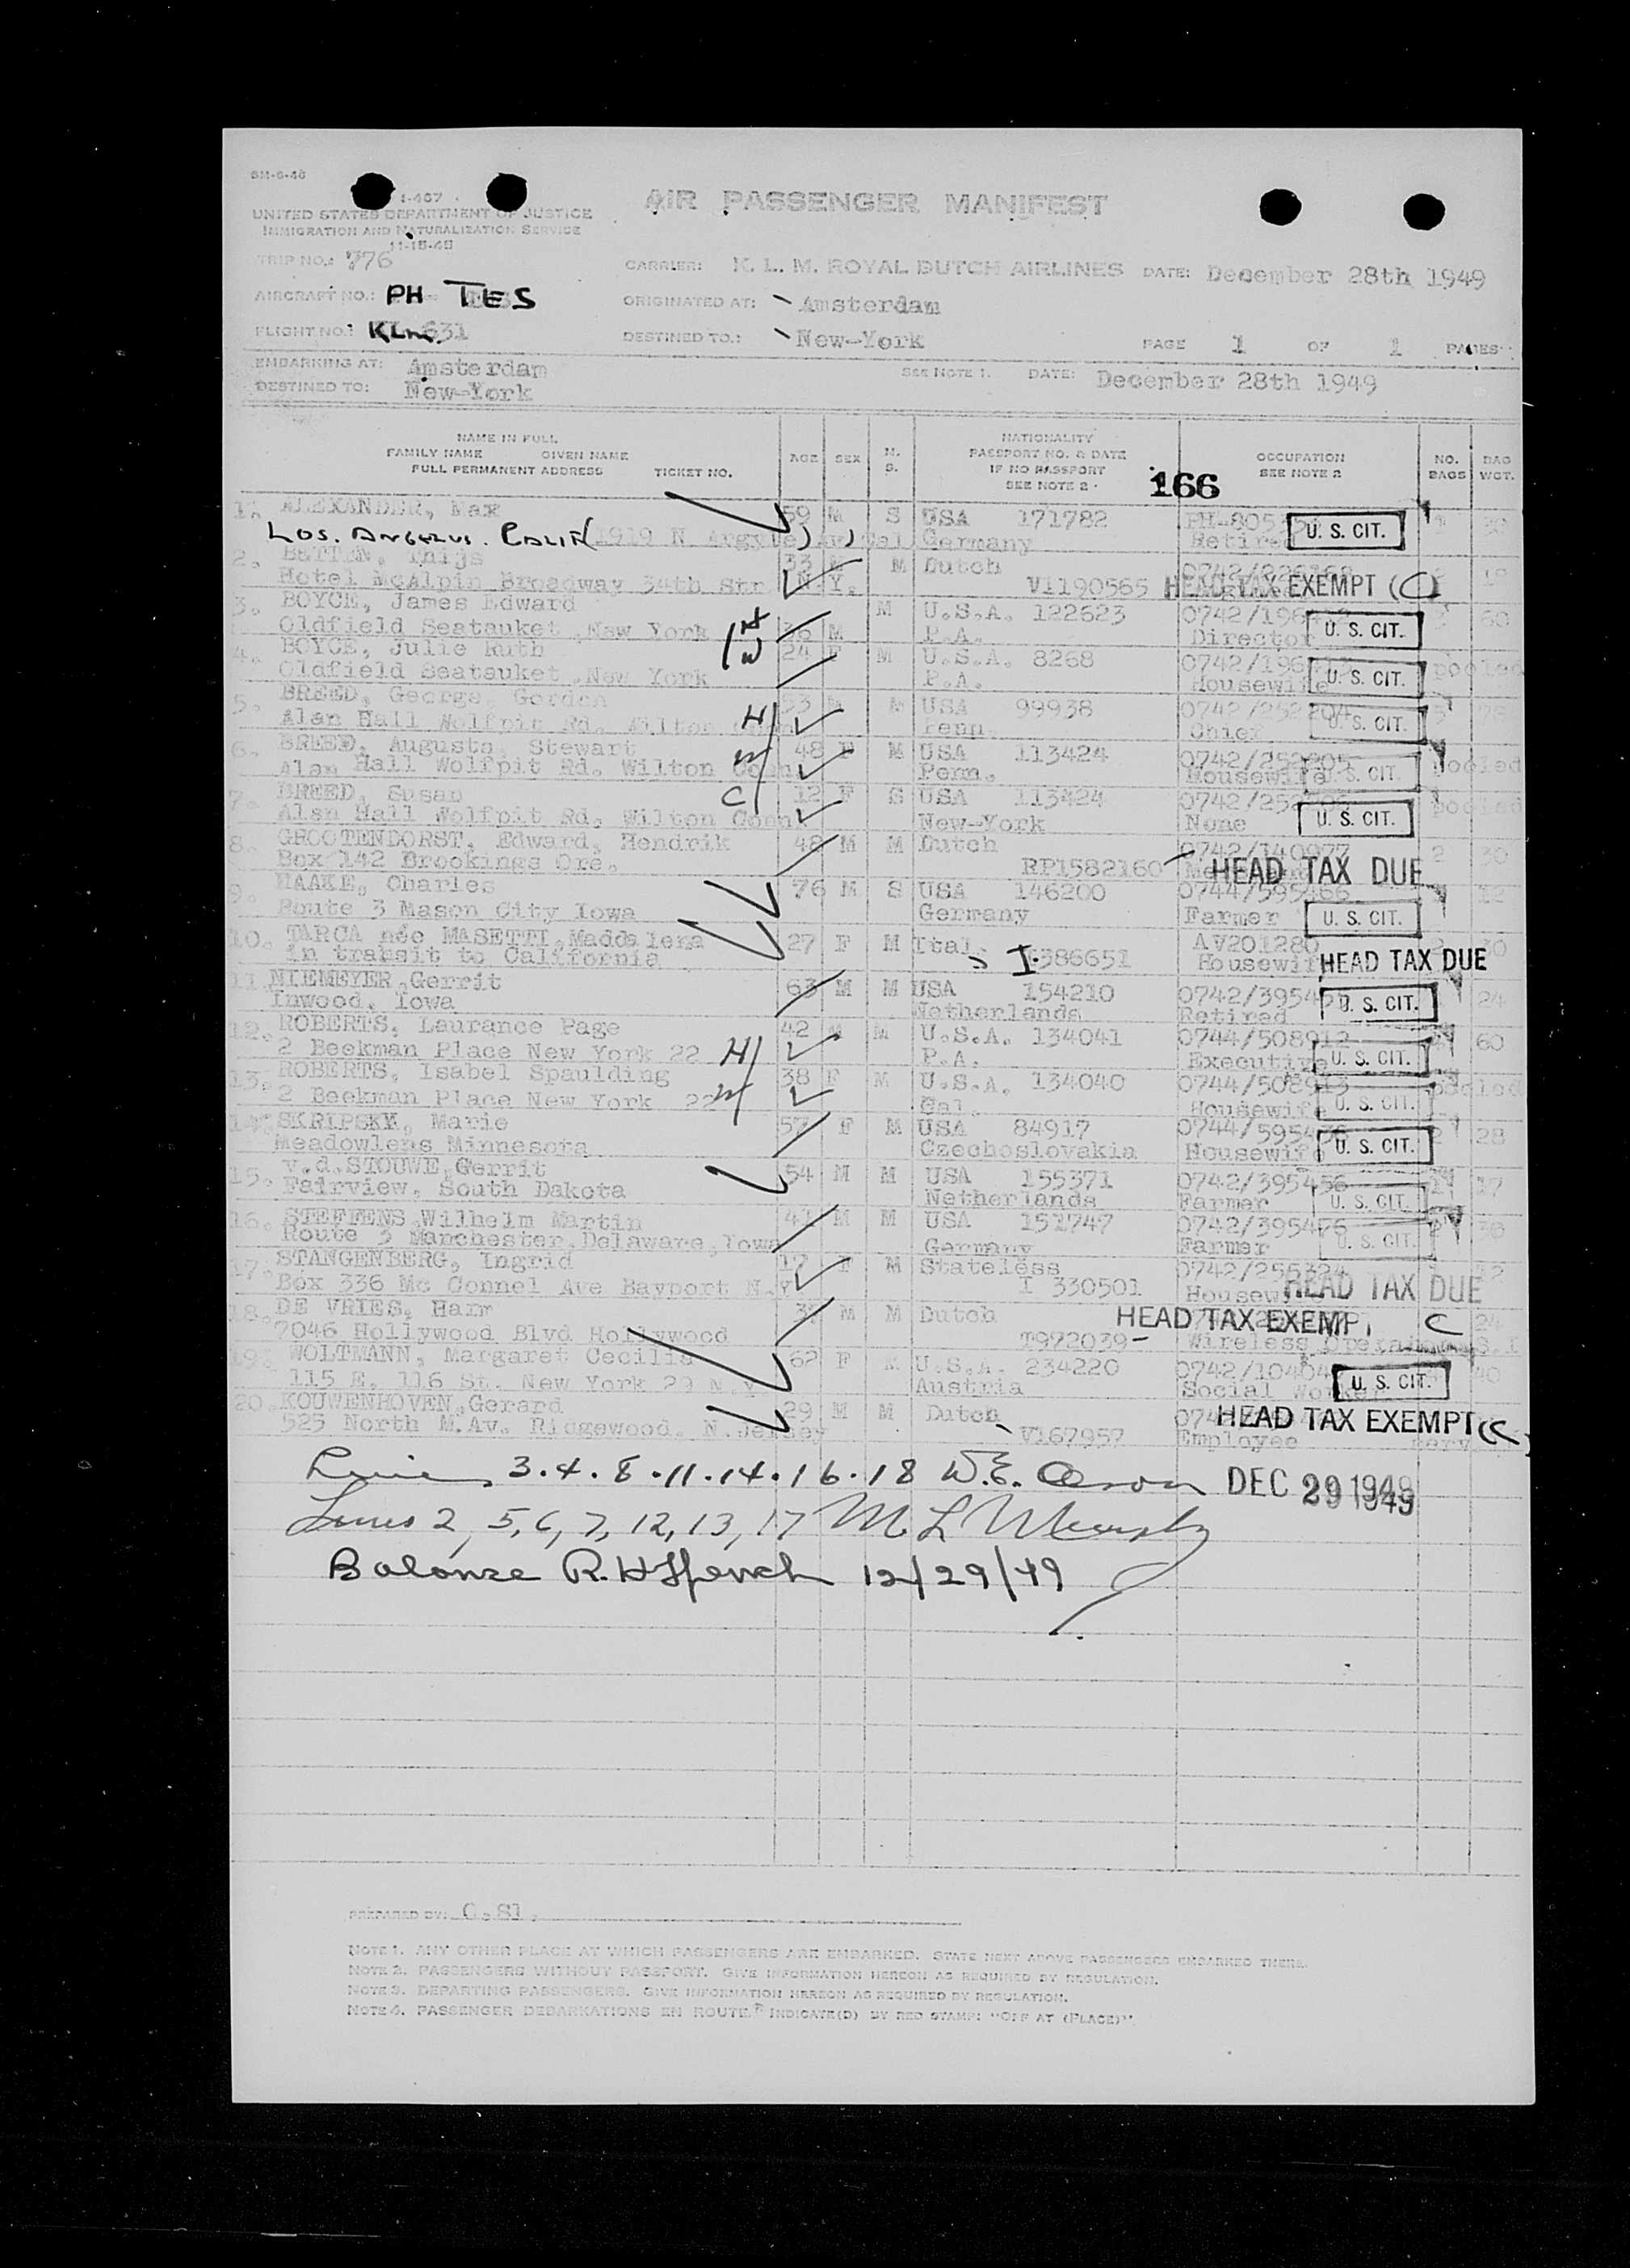 SM-6-48
I-467
UNITED STATES DEPARTMENT OF JUSTICE
IMMIGRATION AND NATURALIZATION SERVICE
11-15-45
AIR PASSENGER MANIFEST
TRIP NO.: 776
CARRIER: K. L. M. ROYAL DUTCH AIRLINES DATE: December 28th 1949
AIRCRAFT NO.: PH TES
ORIGINATED AT: Amsterdam
FLIGHT NO.: KLM. 631
DESTINED TO.: New-York
PAGE 1 OF 1 PAGES
EMBARKING AT: Amsterdam
SEE NOTE 1. DATE: December 28th 1949
DESTINED TO: New-York
NAME IN FULL
FAMILY NAME GIVEN NAME
FULL PERMANENT ADDRESS TICKET NO.
AGE SEX M. S.
NATIONALITY
PASSPORT NO. & DATE
IF NO PASSPORT
SEE NOTE 2
OCCUPATION
SEE NOTE 2
NO. BAGS BAG WGT.
166
1. ALEXANDER, Max 59 M S USA 171782
LOS. ANGELUS. CALIF (1919 N Argyle) Germany Retired U. S. CIT.
2. BETTEN, Thijs 33 M M Dutch
Hotel McAlpin Broadway 34th Str N.Y. V1190565 HEAD TAX EXEMPT (C)
3. BOYCE, James Edward M U.S.A. 122623
Oldfield Seatauket, New York H 36 M P.A. Director U. S. CIT.
4. BOYCE, Julie Ruth W 24 F M U.S.A. 8268 pooled
Oldfield Seatauket, New York P.A. Housewife U. S. CIT.
5. BREED, George, Gordon 53 M M USA 99938 0742/252204
Alan Hall Wolfpit Rd. Wilton Conn H Penn. Chief U. S. CIT.
6. BREED, Augusta, Stewart 48 F M USA 113424 0742/252205 pooled
Alan Hall Wolfpit Rd. Wilton Conn W Penn. Housewife U. S. CIT.
7. BREED, Susan C 12 F S USA 113424 pooled
Alan Hall Wolfpit Rd, Wilton Conn New-York None U. S. CIT.
8. GROOTENDORST, Edward, Hendrik 48 M M Dutch 0742/140977 2 30
Box 142 Brookings Ore. RP1582160 HEAD TAX DUE
9. HAAKE, Charles 76 M S USA 146200 0744/595466 12
Route 3 Mason City Iowa Germany Farmer U. S. CIT.
10. TARCA née MASETTI, Maddalena 27 F M Ital. I.386651 AV201280 30
in transit to California Housewife HEAD TAX DUE
11 NIEMEYER, Gerrit 63 M M USA 154210 24
Inwood, Iowa Netherlands Retired U. S. CIT.
12. ROBERTS, Laurance Page 42 M M U.S.A. 134041 0744/508912 60
2 Beekman Place New York 22 H P.A. Executive U. S. CIT.
13. ROBERTS, Isabel Spaulding 38 F M U.S.A. 134040 0744/508913 pooled
2 Beekman Place New York 22 W Cal. Housewife U. S. CIT.
14. SKRIPSKY, Marie 57 F M USA 84917 2 28
Meadowlens Minnesota Czechoslovakia Housewife U. S. CIT.
15. v.d. STOUWE, Gerrit 54 M M USA 155371 0742/395456 1 17
Fairview, South Dakota Netherlands Farmer U. S. CIT.
16. STEFFENS, Wilhelm Martin M M USA 151747 0742/395476 2
Route 3 Manchester, Delaware, Iowa Germany Farmer U. S. CIT.
17. STANGENBERG, Ingrid 17 F M Stateless
Box 336 Mc Connel Ave Bayport N.Y I 330501 HEAD TAX DUE
18. DE VRIES, Harm M M Dutch HEAD TAX EXEMPT C 24
7046 Hollywood Blvd Hollywood T972039 Wireless
19. WOLTMANN, Margaret Cecilia 62 F M U.S.A. 234220 40
115 E. 116 St. New York 29 N.Y Austria Social Worker U. S. CIT.
20. KOUWENHOVEN, Gerard 29 M M Dutch HEAD TAX EXEMPT (C)
525 North M.Av. Ridgewood, N. Jersey V167957 Employee
Lines 3.4.8.11.14.16.18 W.E. Olson DEC 29 1949
Lines 2, 5, 6, 7, 12, 13, 17 M L Murphy
Balance R. H French 12/29/49
PREPARED BY: O.Sl.
NOTE 1. ANY OTHER PLACE AT WHICH PASSENGERS ARE EMBARKED. STATE NEXT ABOVE PASSENGERS EMBARKED THERE.
NOTE 2. PASSENGERS WITHOUT PASSPORT. GIVE INFORMATION HEREON AS REQUIRED BY REGULATION.
NOTE 3. DEPARTING PASSENGERS. GIVE INFORMATION HEREON AS REQUIRED BY REGULATION.
NOTE 4. PASSENGER DEBARKATIONS EN ROUTE. INDICATE(D) BY RED STAMP: "OFF AT (PLACE)".